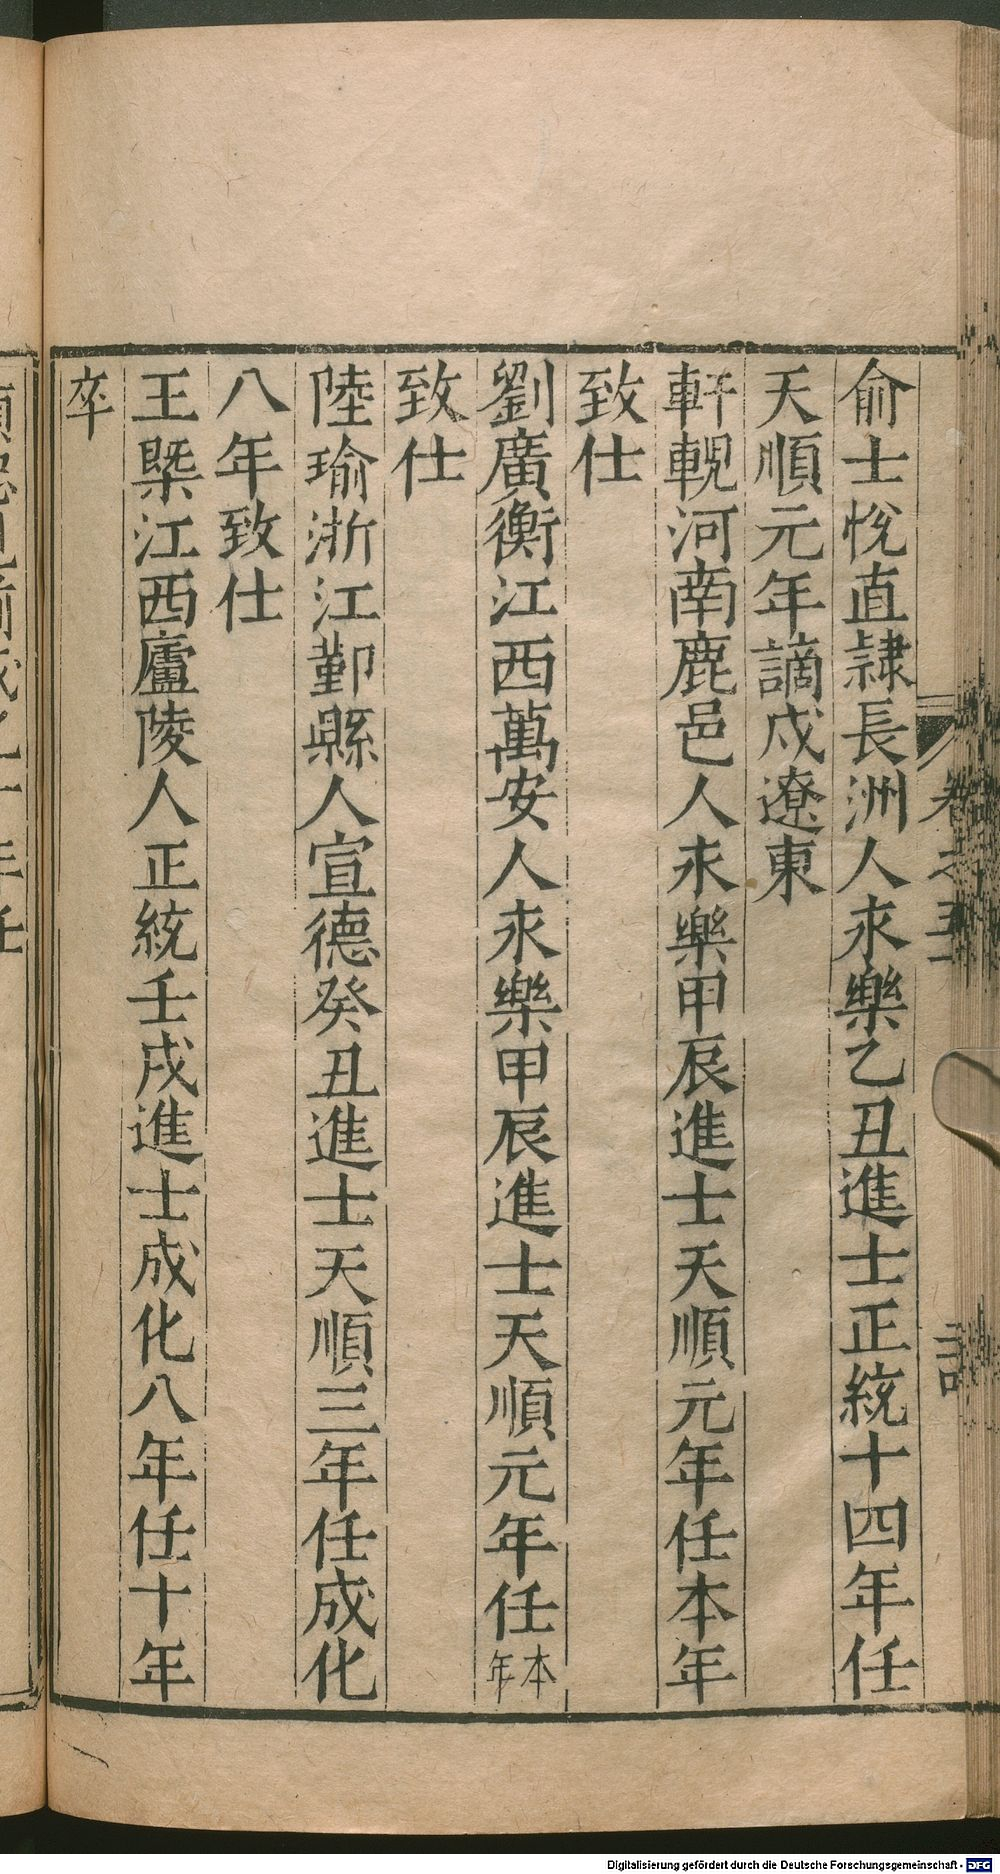 俞士悅直隷長洲人永樂乙丑進士正統十四年任
天順元年謫戍遼東
軒輗河南鹿邑人永樂甲辰進士天順元年任本年
致仕
劉廣衡江西萬安人永樂甲辰進士天順元年任本年
致仕
陸瑜浙江鄞縣人宣德癸丑進士天順三年任成化
八年致仕
王槩江西廬陵人正統壬戌進士成化八年任十年
卒
卷之五十
Digitalisierung gefördert durch die Deutsche Forschungsgemeinschaft - DFG